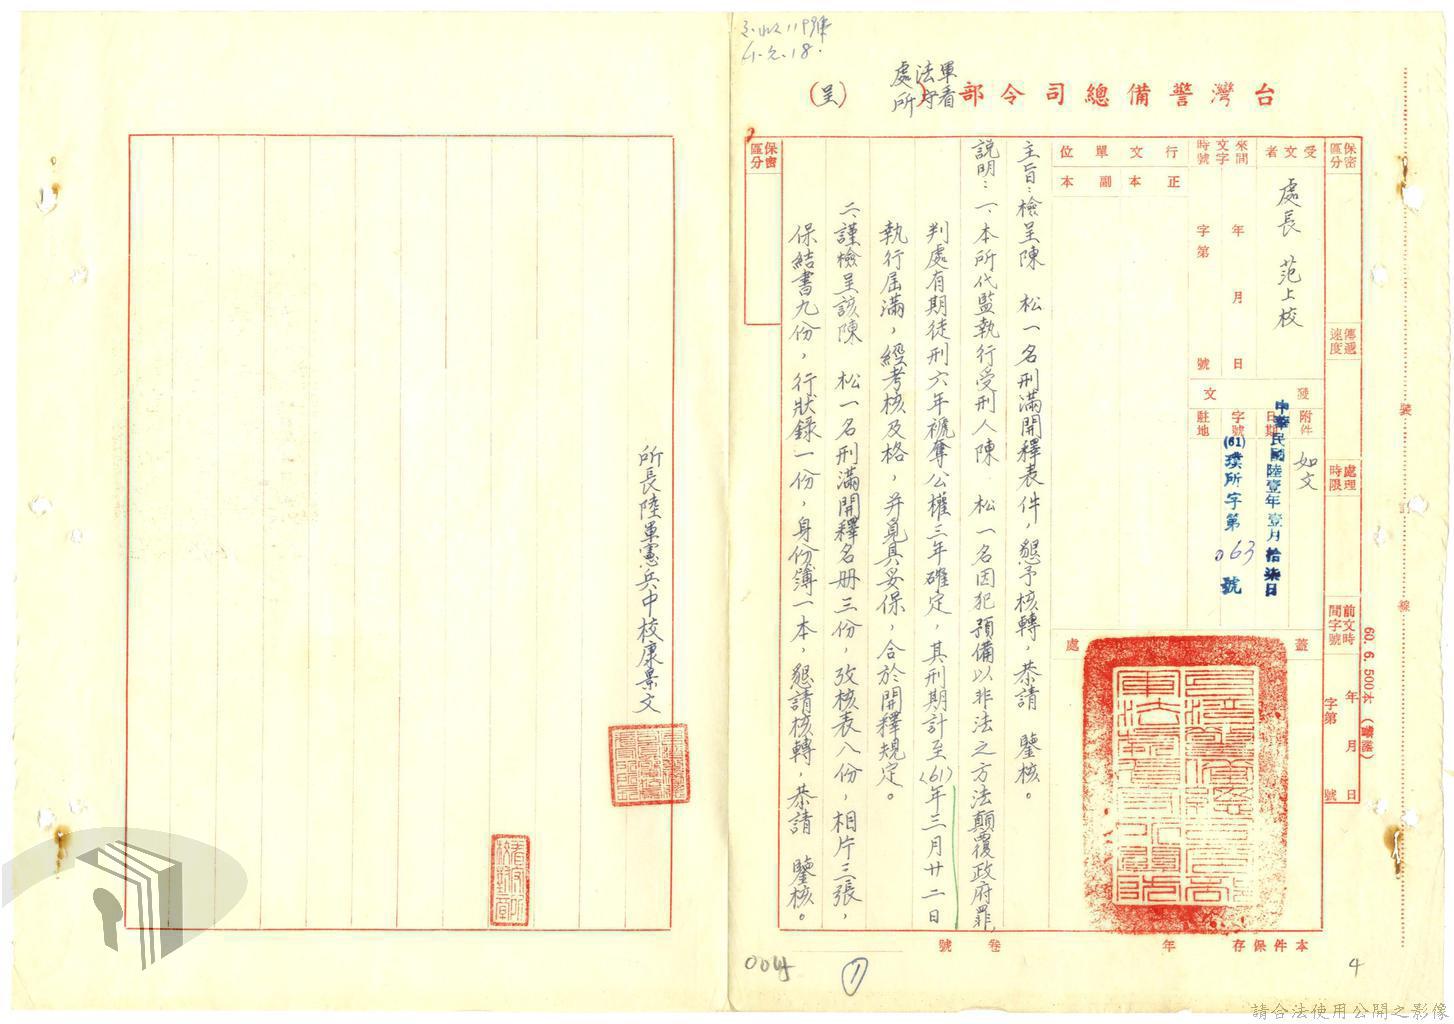 台灣警備總司令部
軍法處
看守所
(呈)
保密區分
傳遞速度
處理時限
前文時間字號
年 月 日
字第 號
受文者
處長 范上校
來文時間字號
年 月 日
字第 號
行文單位
正本
副本
發文
附件
如文
日期
中華民國陸壹年壹月拾柒日
字號
(61)璞所字第063號
駐地
蓋
處
主旨：檢呈陳 松一名刑滿開釋表件，懇予核轉，恭請 鑒核。
說明：一、本所代監執行受刑人陳 松一名因犯預備以非法之方法顛覆政府罪
判處有期徒刑六年褫奪公權三年確定，其刑期計至(61)年三月廿二日
執行屆滿，經考核及格，并覓具妥保，合於開釋規定。
二、謹檢呈該陳 松一名刑滿開釋名册三份，攷核表八份，相片三張，
保結書九份，行狀錄一份，身份簿一本，懇請核轉，恭請 鑒核。
保密區分
所長陸軍憲兵中校康景文
本件保存 年
卷 號
60.6.500本
裝訂線
004
1
4
請合法使用公開之影像